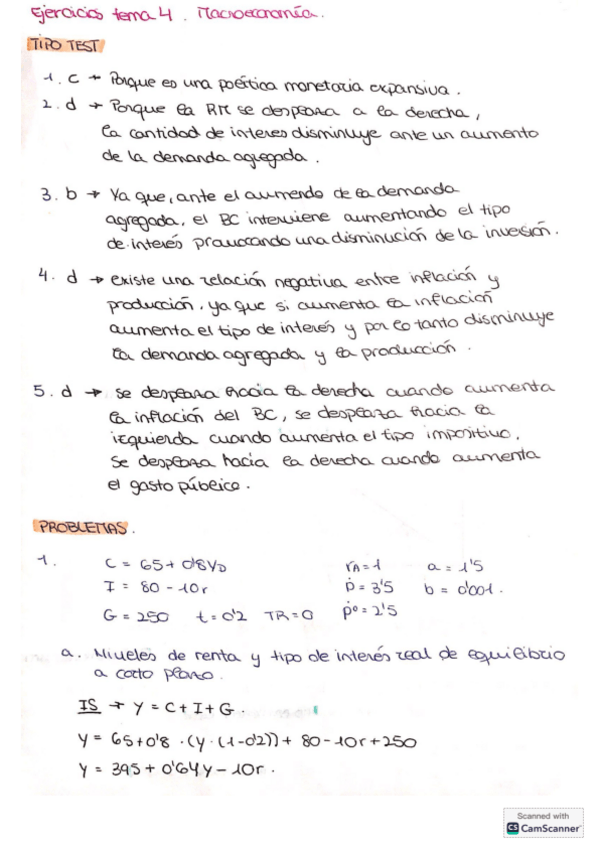 Ejercicios tema 4. Macroeconomía.
TIPO TEST
1. c → Porque es una política monetaria expansiva.
2. d → Porque la RM se desplaza a la derecha,
la cantidad de interes disminuye ante un aumento
de la demanda agregada.
3. b → Ya que, ante el aumento de la demanda
agregada, el BC interviene aumentando el tipo
de interés provocando una disminución de la inversión.
4. d → existe una relación negativa entre inflación y
producción, ya que si aumenta la inflación
aumenta el tipo de interés y por lo tanto disminuye
la demanda agregada y la producción.
5. d → se desplaza hacia la derecha cuando aumenta
la inflación del BC, se desplaza hacia la
izquierda cuando aumenta el tipo impositivo.
Se desplaza hacia la derecha cuando aumenta
el gasto público.
PROBLEMAS.
1. C = 65 + 0'8YD rA = 1 a = 1'5
I = 80 - 10r Ṗ = 3'5 b = 0'001.
G = 250 t = 0'2 TR = 0 ṗº = 2'5
a. Niveles de renta y tipo de interés real de equilibrio
a corto plazo.
IS → Y = C + I + G.
Y = 65 + 0'8 · (Y · (1-0'2)) + 80 - 10r + 250
Y = 395 + 0'64Y - 10r.
Scanned with
CS CamScanner